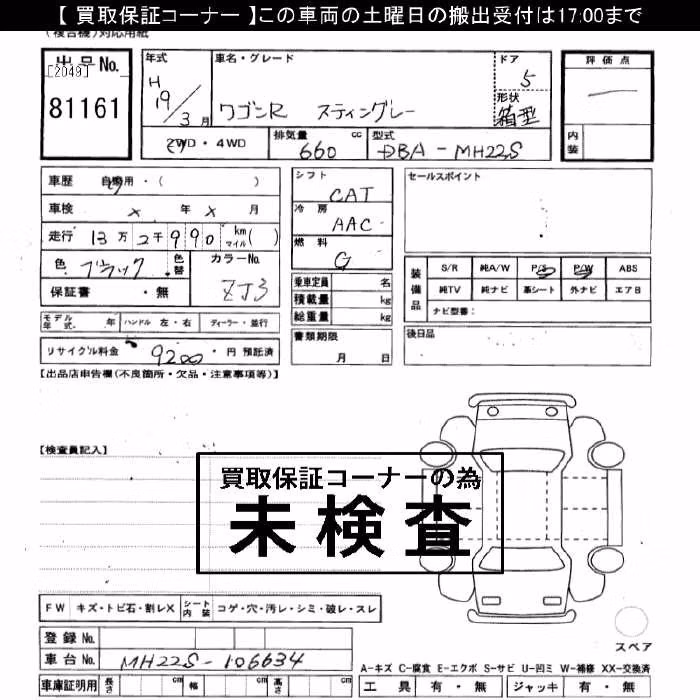 【 買取保証コーナー 】この車両の土曜日の搬出受付は17:00まで
(複合機)対応用紙
出品No.
[2049]
81161
年式
H 19/3月
車名・グレード
ワゴンR スティングレー
ドア
5
形状
箱型
評価点
内装
2WD・4WD
排気量 cc
660
型式
DBA-MH22S
車歴 自家用・( )
車検 × 年 × 月
走行 13万2千990 km マイル( )
色 ブラック 色替
カラーNo.
ZJ3
保証書 ・ 無
シフト
CAT
冷房
AAC
燃料
G
乗車定員 名
積載量 kg
総重量 kg
書類期限
月 日
セールスポイント
装備品
S/R 純A/W P/S P/W ABS
純TV 純ナビ 革シート 外ナビ エアB
ナビ型番:
後日品
モデル年式 年 ハンドル 左・右 ディーラー・並行
リサイクル料金 9200 円 預託済
【出品店申告欄(不良箇所・欠品・注意事項等)】
【検査員記入】
買取保証コーナーの為
未検査
FW キズ・トビ石・割レX シート内装 コゲ・穴・汚レ・シミ・破レ・スレ
登録No.
車台No. MH22S-106634
車庫証明用 長さ cm 幅 cm 高さ cm
スペア
A-キズ C-腐食 E-エクボ S-サビ U-凹ミ W-補修 XX-交換済
工具 有・無 ジャッキ 有・無